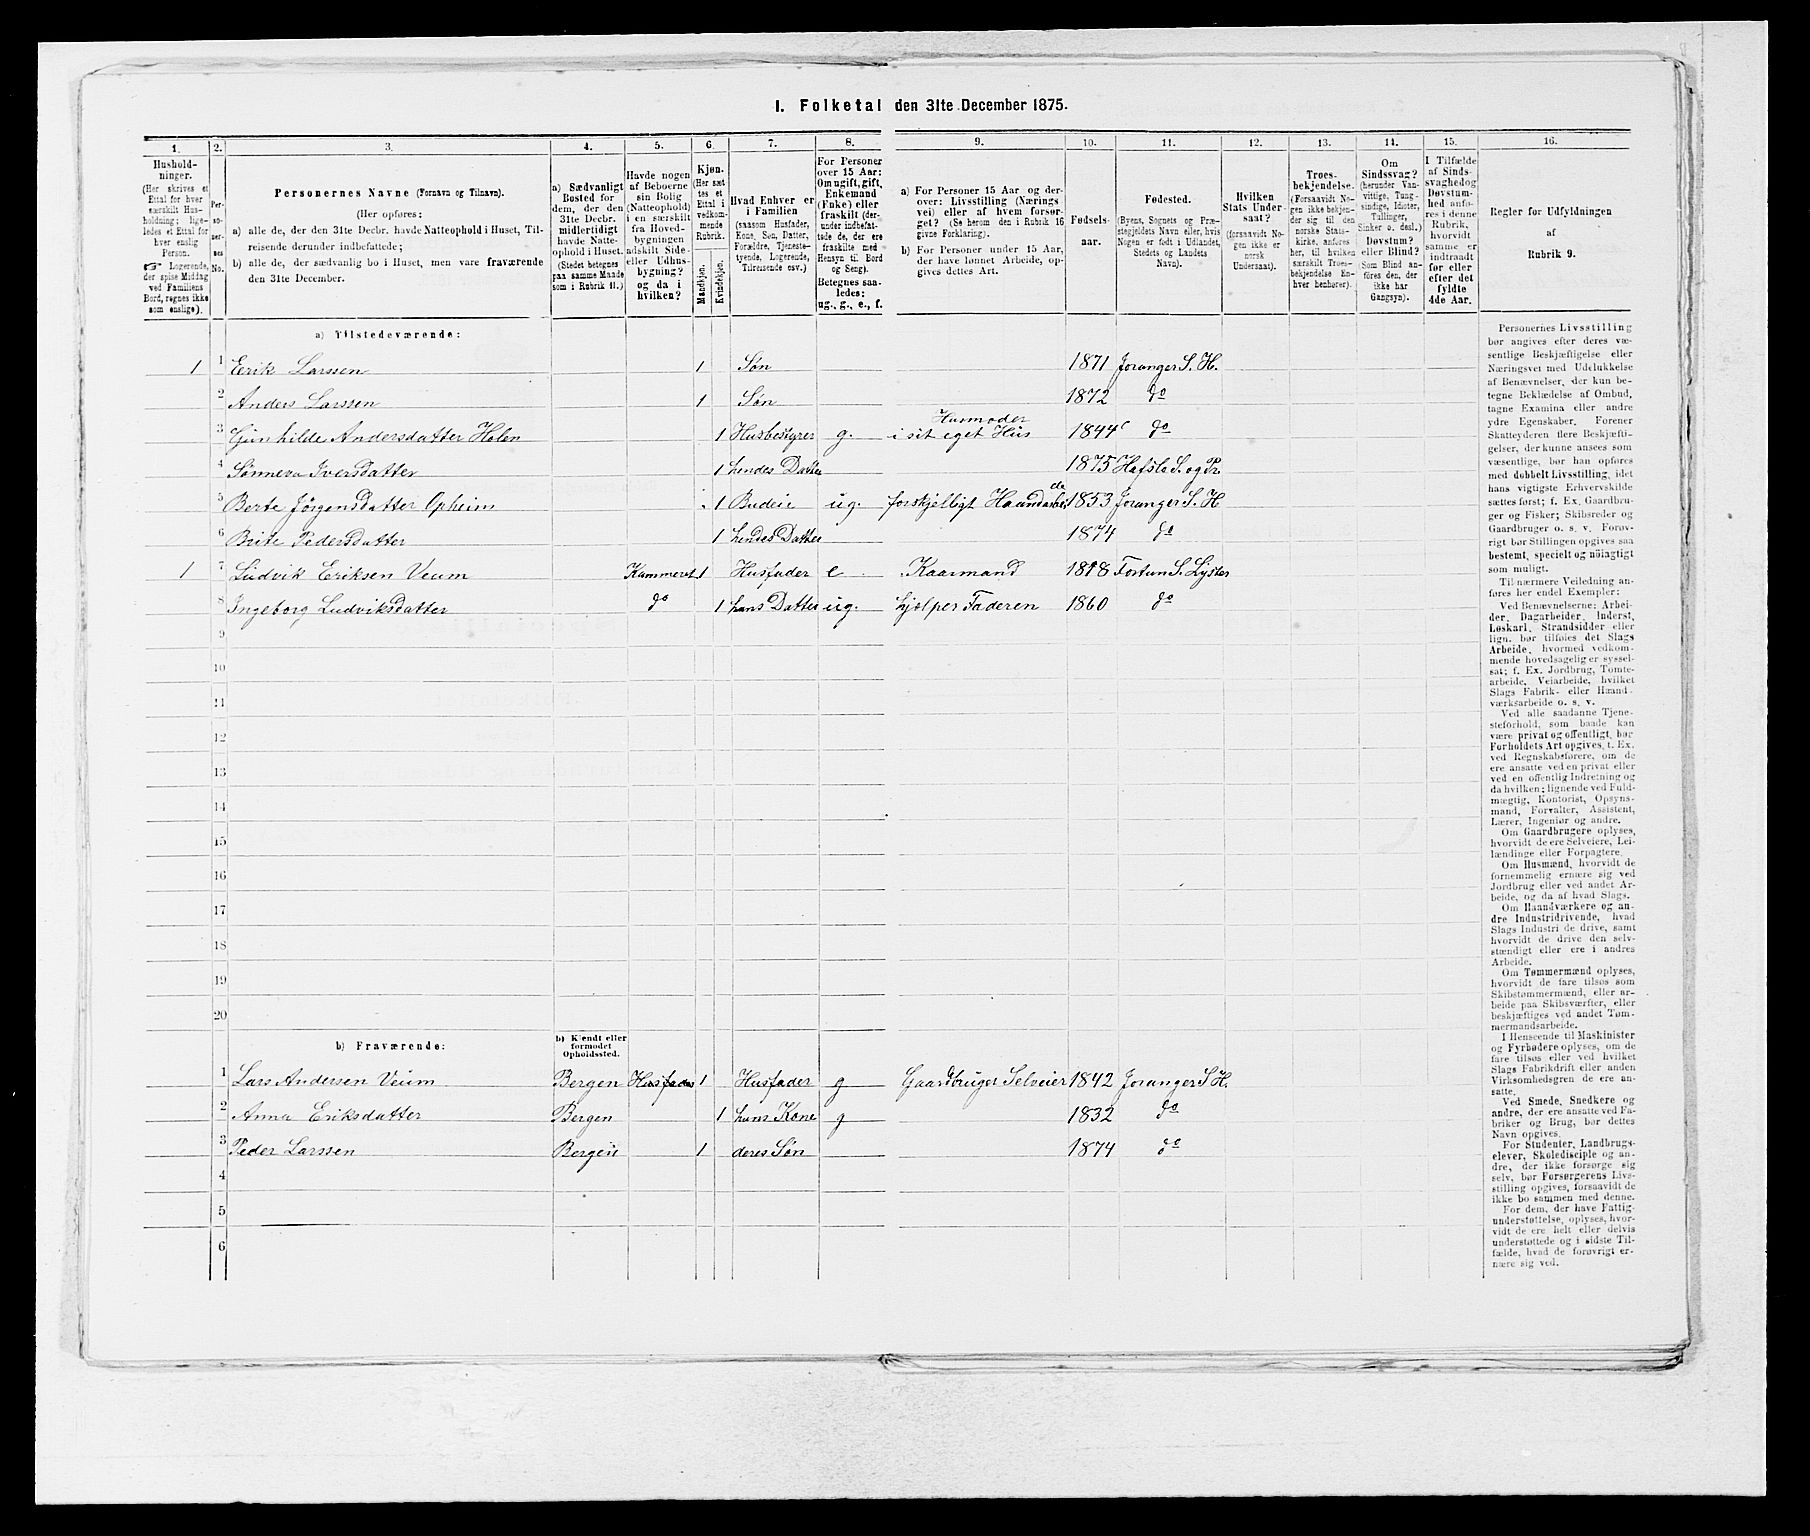 I. Folketal den 31te December 1875.
1. 2. 3. 4. 5. 6. 7. 8. 9. 10. 11. 12. 13. 14. 15. 16.
Hushold-
ninger.
(Her skrives et
Ettal for hver
særskilt Hus-
holdning; lige-
ledes et Ettal for
hver enslig
Person.
☞ Logerende,
der spise Middag
ved Familiens
Bord, regnes ikke
som enslige).
Per-
so-
ner-
nes
No.
Personernes Navne (Fornavn og Tilnavn).
(Her opføres:
a) alle de, der den 31te Decbr. havde Natteophold i Huset, Til-
reisende derunder indbefattede;
b) alle de, der sædvanlig bo i Huset, men vare fraværende
den 31te December.
a) Sædvanligt
Bosted for
dem, der den
31te Decbr.
midlertidigt
havde Natte-
ophold i Huset.
(Stedet betegnes
paa samme Maade
som i Rubrik 11.)
Havde nogen
af Beboerne
sin Bolig
(Natteophold)
i en særskilt
fra Hoved-
bygningen
adskilt Side
eller Udhus-
bygning?
og da i
hvilken?
Kjøn.
(Her sæt
tes et
Ettal i
vedkom-
mende
Rubrik.
Mandkjøn.
Kvindekjøn.
Hvad Enhver er
i Familien
(saasom Husfader,
Kone, Søn, Datter,
Forældre, Tjeneste-
tyende, Logerende,
Tilreisende osv.)
For Personer
over 15 Aar:
Om ugift, gift,
Enkemand
(Enke) eller
fraskilt (der-
under indbefat-
tede de, der ere
fraskilte med
Hensyn til Bord
og Seng).
Betegnes saa-
ledes:
ug., g., e., f.
a) For Personer 15 Aar og der-
over: Livsstilling (Nærings
vei) eller af hvem forsør-
get? (Se herom den i Rubrik 16
givne Forklaring).
b) For Personer under 15 Aar,
der have lønnet Arbeide, op-
gives dettes Art.
Fødsels-
aar.
Fødested.
(Byens, Sognets og Præ-
stegjeldets Navn eller, hvis
Nogen er født i Udlandet,
Stedets og Landets
Navn).
Hvilken
Stats Under-
saat?
(forsaavidt No-
gen ikke er
norsk
Undersaat).
Troes-
bekjendelse.
(Forsaavidt No-
gen ikke bekjen-
der sig til den
norske Stats-
kirke, anføres
her, til hvilken
særskilt Troes-
bekjendelse En-
hver henhører).
Om
Sindssvag?
(herunder Van-
vittige, Tung-
sindige, Idioter,
Tullinger,
Sinker o. desl.)
Døvstum?
eller Blind?
(Som Blind an-
føres den, der
ikke har
Gangsyn).
I Tilfælde
af Sinds-
svaghed og
Døvstum-
hed anfø-
res i denne
Rubrik,
hvorvidt
samme er
indtraadt
før eller
efter det
fyldte
4de Aar.
Regler for Udfyldningen
af
Rubrik 9.
a) Tilstedeværende:
1 1 Erik Larssen 1 Søn 1871 Joranger S. H.
2 Anders Larssen 1 Søn 1872 do
3 Gunhilde Andersdatter Holen 1 Husbestyrer g. Husmoder i sit eget Hus 1844 do
4 Sønneva Iversdatter 1 hendes Datter 1875 Hafslo S. og Pr.
5 Berte Jørgensdatter Opheim 1 Budeie ug. forskjelligt Haandarbeide 1853 Joranger S. H
6 Brite Pedersdatter 1 hendes Datter 1874 do
1 7 Ludvik Eriksen Veum Kammeret 1 Husfader e Kaarmand 1818 Fortun S. Lyster
8 Ingeborg Ludviksdatter do 1 hans Datter ug. hjelper Faderen 1860 do
9
10
11
12
13
14
15
16
17
18
19
20
b) Fraværende:
b) Kjendt eller
formodet
Opholdssted.
1 Lars Andersen Veum Bergen Husfader 1 Husfader g Gaardbruger Selveier 1842 Joranger S H.
2 Anna Eriksdatter Bergen 1 hans Kone g 1832 do
3 Peder Larssen Bergen 1 deres Søn 1874 do
4
5
6
Personernes Livsstilling
bør angives efter deres væ-
sentlige Beskjæftigelse eller
Næringsvei med Udelukkelse
af Benævnelser, der kun be-
tegne Beklædelse af Ombud,
tagne Examina eller andre
ydre Egenskaber. Forener
Skatteyderen flere Beskjæfti-
gelser, der kunne ansees som
væsentlige, bør han opføres
med dobbelt Livsstilling, idet
hans vigtigste Erhvervskilde
sættes først; f. Ex. Gaardbru-
ger og Fisker; Skibsreder og
Gaardbruger o. s. v. Forøv-
rigt bør Stillingen opgives saa
bestemt, specielt og nøiagtigt
som muligt.
Til nærmere Veiledning an-
føres her endel Exempler:
Ved Benævnelserne: Arbei-
der, Dagarbeider, Inderst,
Løskarl, Strandsidder eller
lign. bør tilføies det Slags
Arbeide, hvormed vedkom-
mende hovedsagelig er syssel-
sat; f. Ex. Jordbrug, Tomte-
arbeide, Veiarbeide, hvilket
Slags Fabrik- eller Haand-
værksarbeide o. s. v.
Ved alle saadanne Tjene-
steforhold, som baade kan
være privat og offentligt, bør
Forholdets Art opgives, t. Ex.
ved Regnskabsførere, om de
ere ansatte ved en privat eller
ved en offentlig Indretning og
da hvilken; lignende ved Fuld-
mægtig, Kontorist, Opsyns-
mand, Forvalter, Assistent,
Lærer, Ingeniør og andre.
Om Gaardbrugere oplyses,
hvorvidt de ere Selveiere, Lei-
lændinge eller Forpagtere.
Om Husmænd, hvorvidt de
fornemmelig ernære sig ved
Jordbrug eller ved andet Ar-
beide, og da af hvad Slags.
Om Haandværkere og an-
dre Industridrivende, hvad
Slags Industri de drive, samt
hvorvidt de drive den selv-
stændigt eller ere i andres
Arbeide.
Om Tømmermænd oplyses,
hvorvidt de fare tilsøs som
Skibstømmermænd, eller ar-
beide paa Skibsværfter, eller
beskjæftiges ved andet Tøm-
mermandsarbeide.
I Henseende til Maskinister
og Fyrbødere oplyses, om de
fare tilsøs eller ved hvilket
Slags Fabrikdrift eller anden
Virksomhedsgren de ere an-
satte.
Ved Smede, Snedkere og
andre, der ere ansatte ved Fa-
briker og Brug, bør dettes
Navn opgives.
For Studenter, Landbrugs-
elever, Skoledisciple og an-
dre, der ikke forsørge sig
selv, bør Forsørgerens Livs-
stilling opgives, forsaavidt de
ikke bo sammen med denne.
For dem, der have Fattig-
understøttelse, oplyses, hvor-
vidt de ere helt eller delvis
understøttede og i sidste Til-
fælde, hvad de forøvrigt er-
nære sig ved.